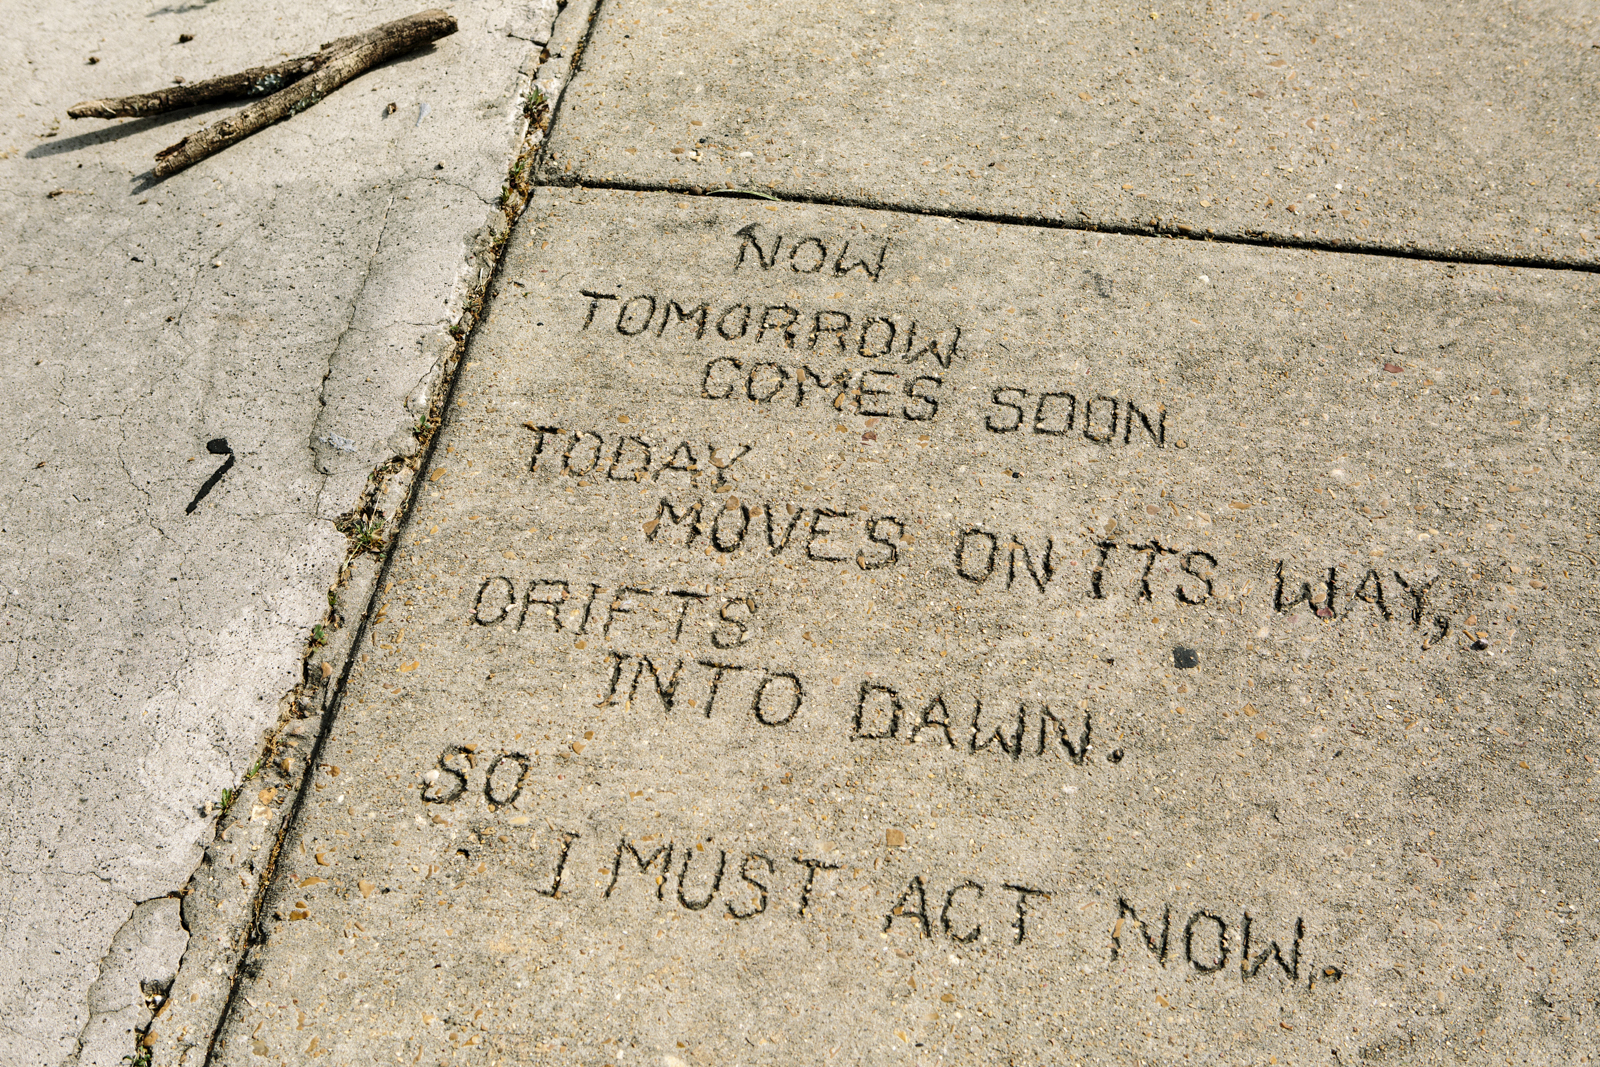 NOW
TOMORROW
COMES SOON.
TODAY
MOVES ON ITS WAY,
DRIFTS
INTO DAWN.
SO
I MUST ACT NOW.